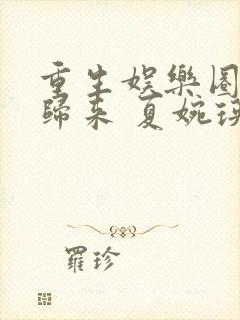 重生娛樂圈
歸來 夏婉瑛
羅珍